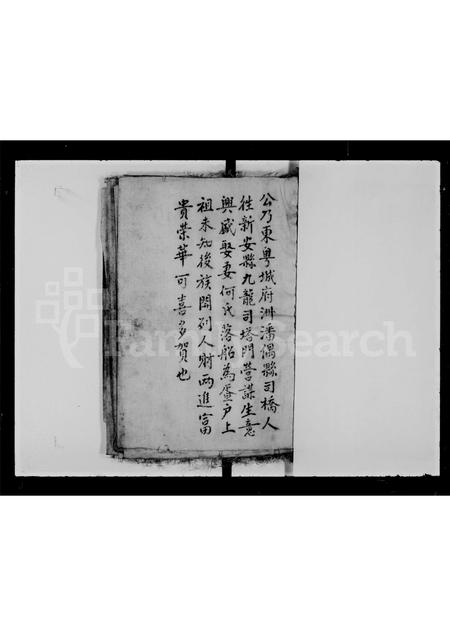 公乃東粵城府洲潘偶縣司橋人
往新安縣九龍司塔門營謀生意
興盛娶妻何氏落船為蛋户上
祖未知後族開列人財兩進富
貴榮華可喜多賀也
FamilySearch